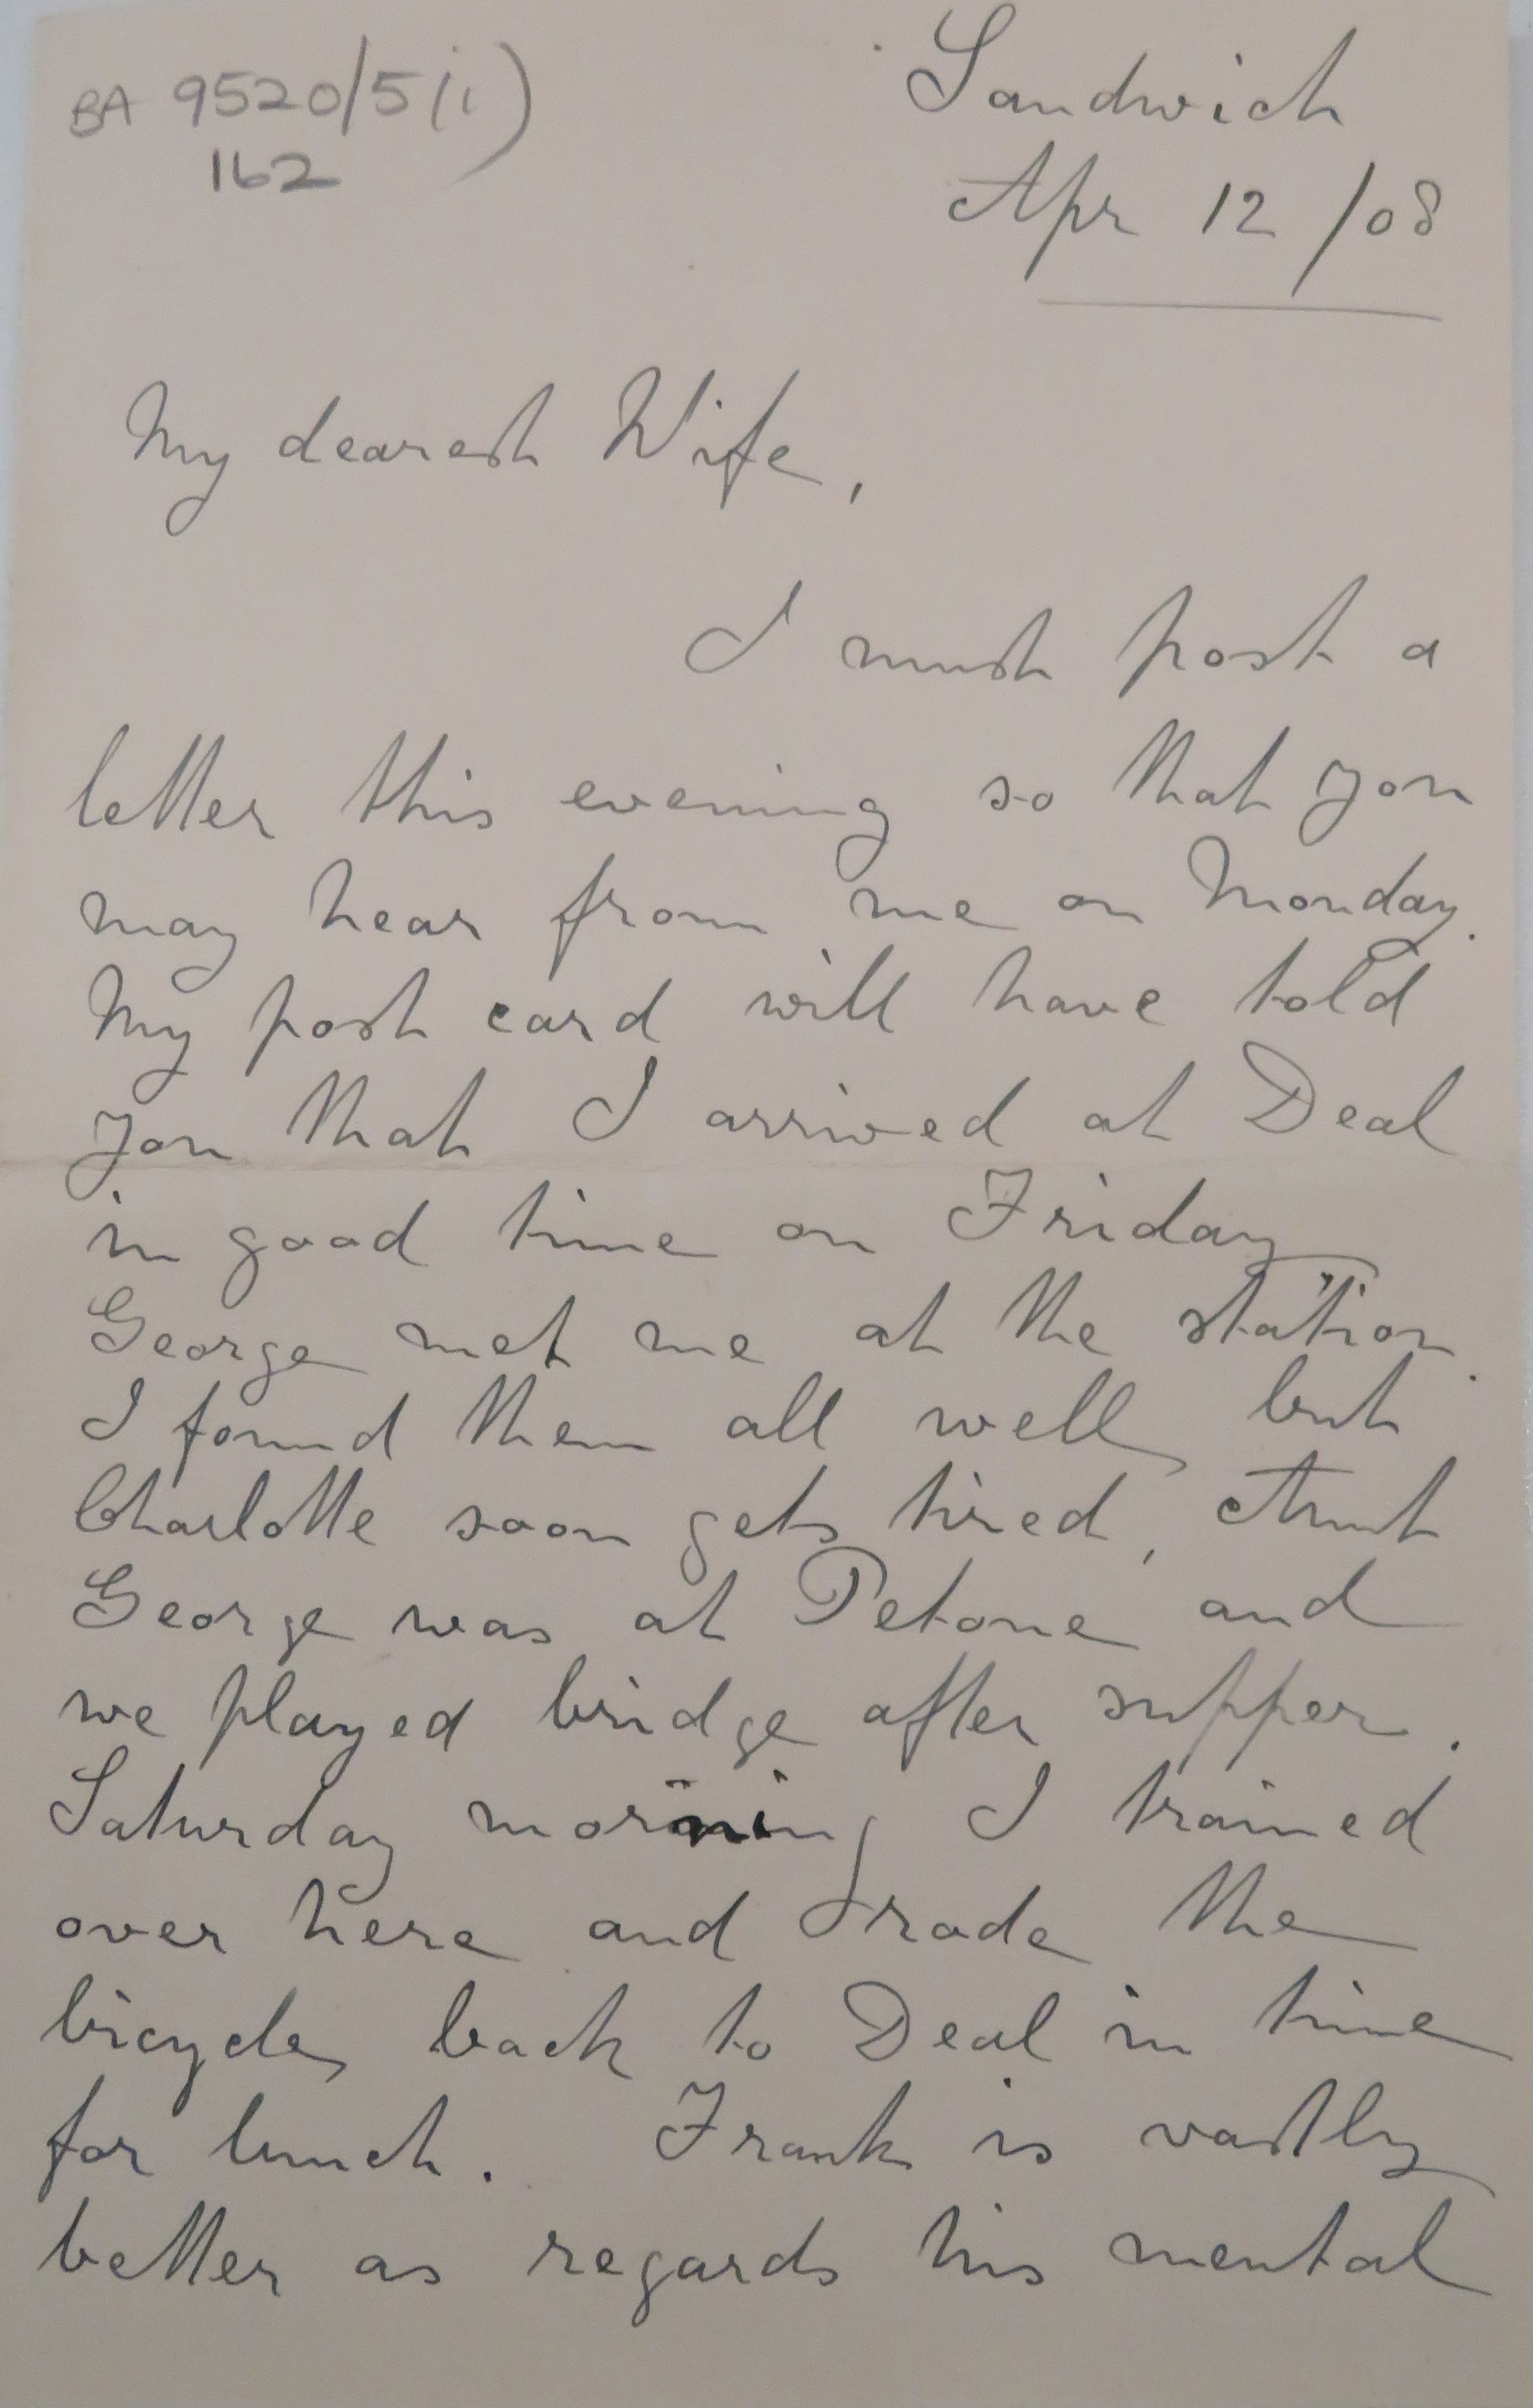 BA 9520/5(i)
162
Sandwich
Apr 12 /08
My dearest Wife,
I must post a
letter this evening so that you
may hear from me on Monday.
My post card will have told
you that I arrived at Deal
in good time on Friday
George met me at the station.
I found them all well, but
Charlotte soon gets tired, Aunt
George was at Petone and
we played bridge after supper.
Saturday morning I trained
over here and rode the
bicycle, back to Deal in time
for lunch. Frank is vastly
better as regards his mental